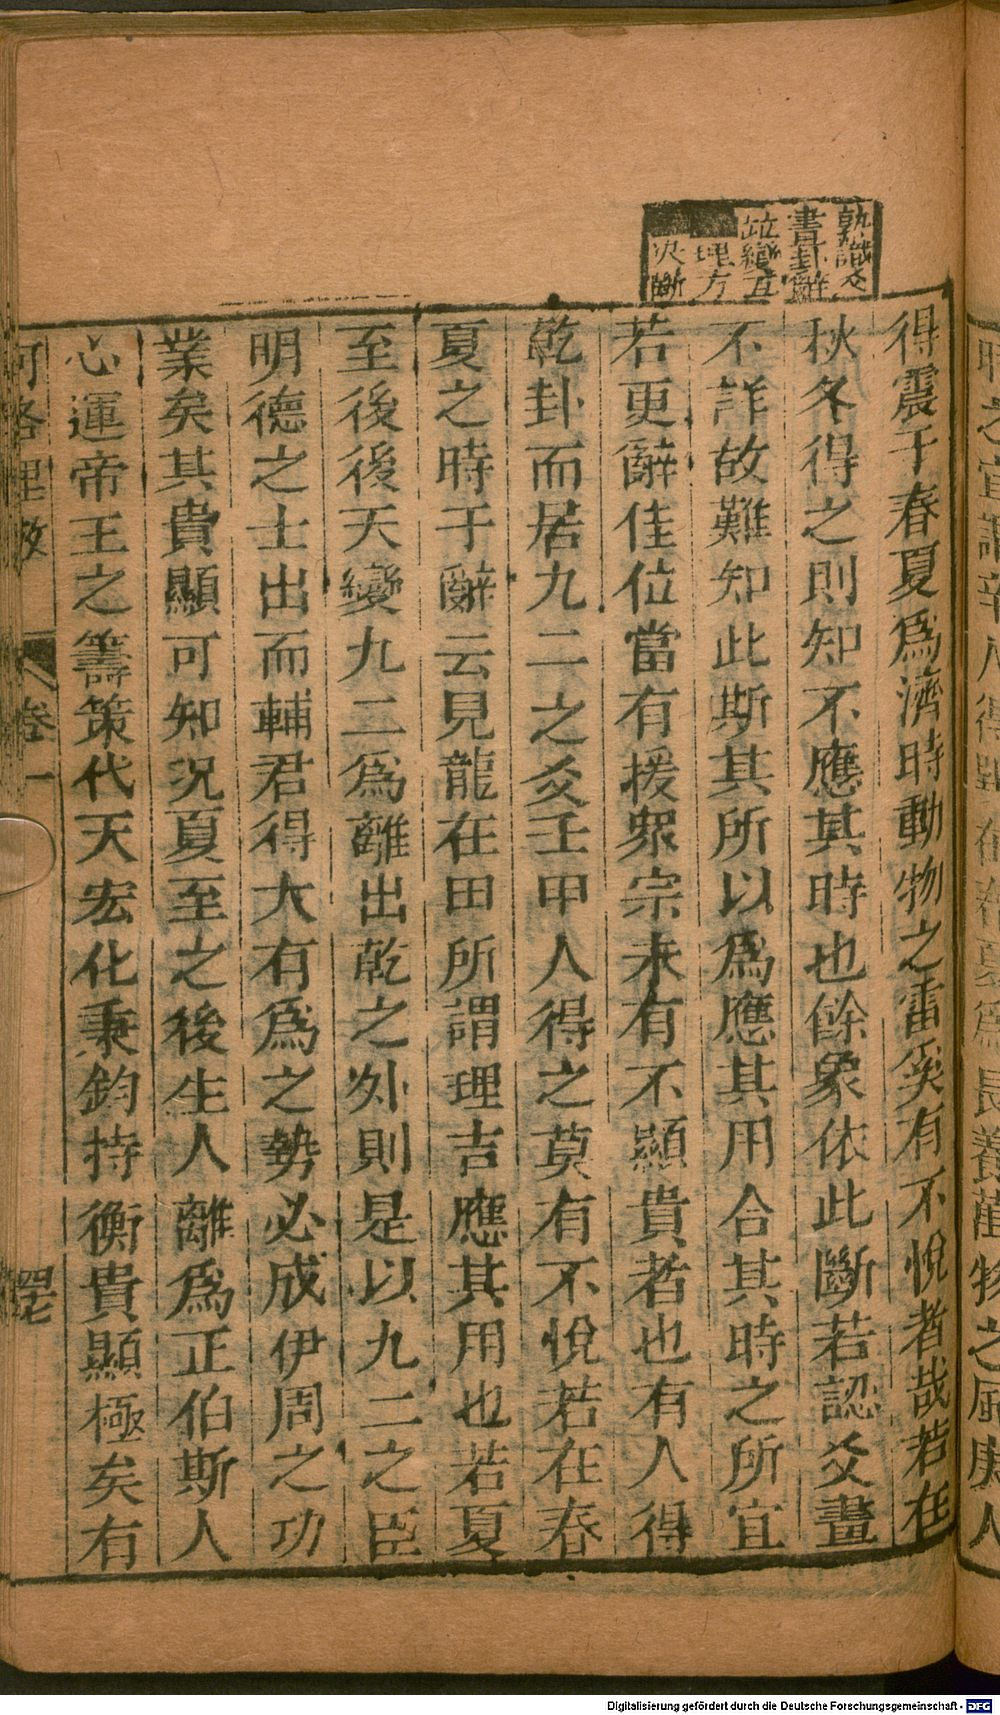 熟識爻
畫卦辭
並變互
理方
決斷
得震于春夏為濟時動物之雷奚有不悅者哉若在
秋冬得之則知不應其時也餘象依此斷若認爻畫
不詳故難知此斯其所以為應其用合其時之所宜
若更辭佳位當有援衆宗來有不顯貴者也有人得
乾卦而居九二之爻壬甲人得之莫有不悅若在春
夏之時于辭云見龍在田所謂理吉應其用也若夏
至後後天變九二為離出乾之外則是以九二之臣
明德之士出而輔君得大有為之勢必成伊周之功
業矣其貴顯可知況夏至之後生人離為正伯斯人
心運帝王之籌策代天宏化秉鈞持衡貴顯極矣有
河洛理數 卷一
時之宜 為長養萬物之風庚人
Digitalisierung gefördert durch die Deutsche Forschungsgemeinschaft - DFG